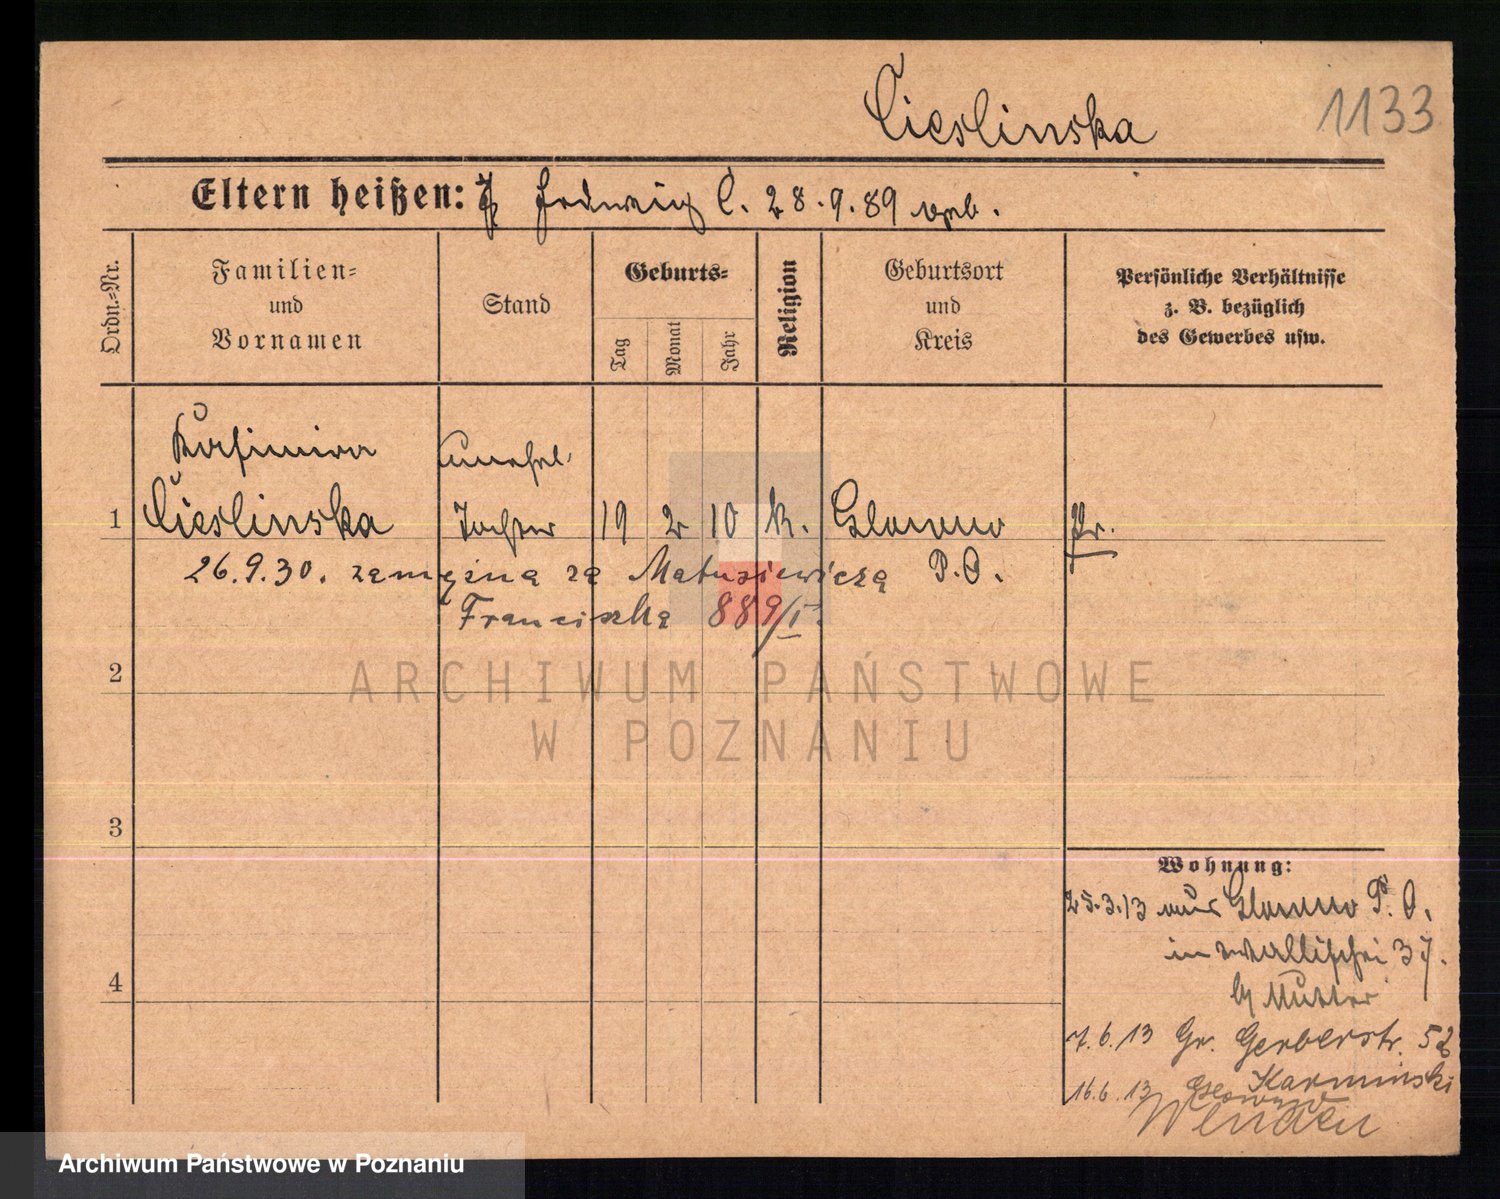 Cieslinska
1133
Eltern heißen: Hedwig C. 28.9.89 geb.
Ordn.=Nr.
Familien=
und
Vornamen
Stand
Geburts=
Tag
Monat
Jahr
Religion
Geburtsort
und
Kreis
Persönliche Verhältnisse
z. B. bezüglich
des Gewerbes usw.
Kasimira unehel.
1 Cieslinska Tochter 19 2 10 k. Glowno Pr.
P.O.
26.9.30. zamężna za Matusiewicza
Franciszka 889/I.
2
3
4
Wohnung:
25.3.13 aus Glowno P. O.
in Wallischei 37.
b/ Mutter
7.6.13 Gr. Gerberstr. 52
Karminski
16.6.13 Glowno
Wenden
ARCHIWUM PAŃSTWOWE
W POZNANIU
Archiwum Państwowe w Poznaniu